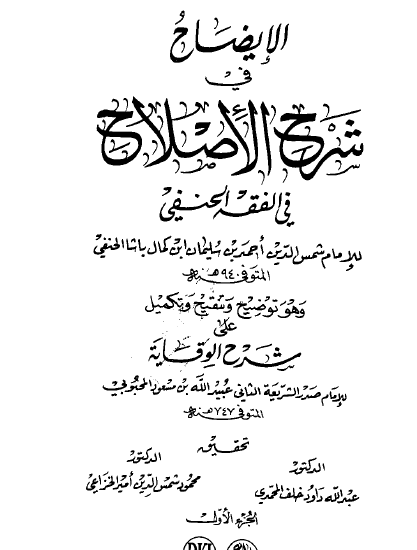 الإيضاح
في
شرح الإصلاح
في الفقه الحنفي
للإمام شمس الدين أحمد بن سليمان ابن كمال باشا الحنفي
المتوفى ٩٤٠ هـ
وهو توضيح وتنقيح وتكميل
على
شرح الوقاية
للإمام صدر الشريعة الثاني عبيد الله بن مسعود المحبوبي
المتوفى ٧٤٧ هـ
تحقيق
الدكتور
عبد الله داود خلف المحمدي
الدكتور
محمود شمس الدين أمير الخزاعي
الجزء الأول
DKI